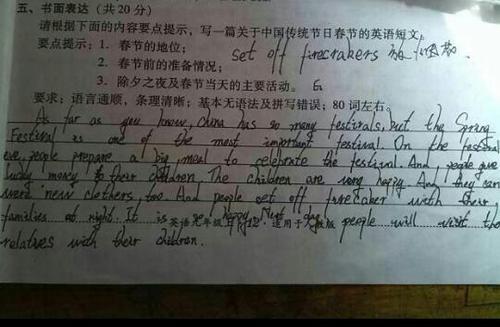 五、书面表达（共20分）
请根据下面的内容要点提示，写一篇关于中国传统节日春节的英语短文。
要点提示：1. 春节的地位；
set off firecrakers
2. 春节前的准备情况；
3. 除夕之夜及春节当天的主要活动。
要求：语言通顺，条理清晰；基本无语法及拼写错误；80词左右。
As far as you know, China has so many festivals, but the Spring
Festival is one of the most important festival. On the festival
eve, people prepare a big meal to celebrate the festival. And people give
lucky money to their children. The children are very happy. And they can
wear new clothers, too. And people set off firecraker with their
families at night. It is happy day! people will visit the
英语九年级 适用于
relatives with their children.